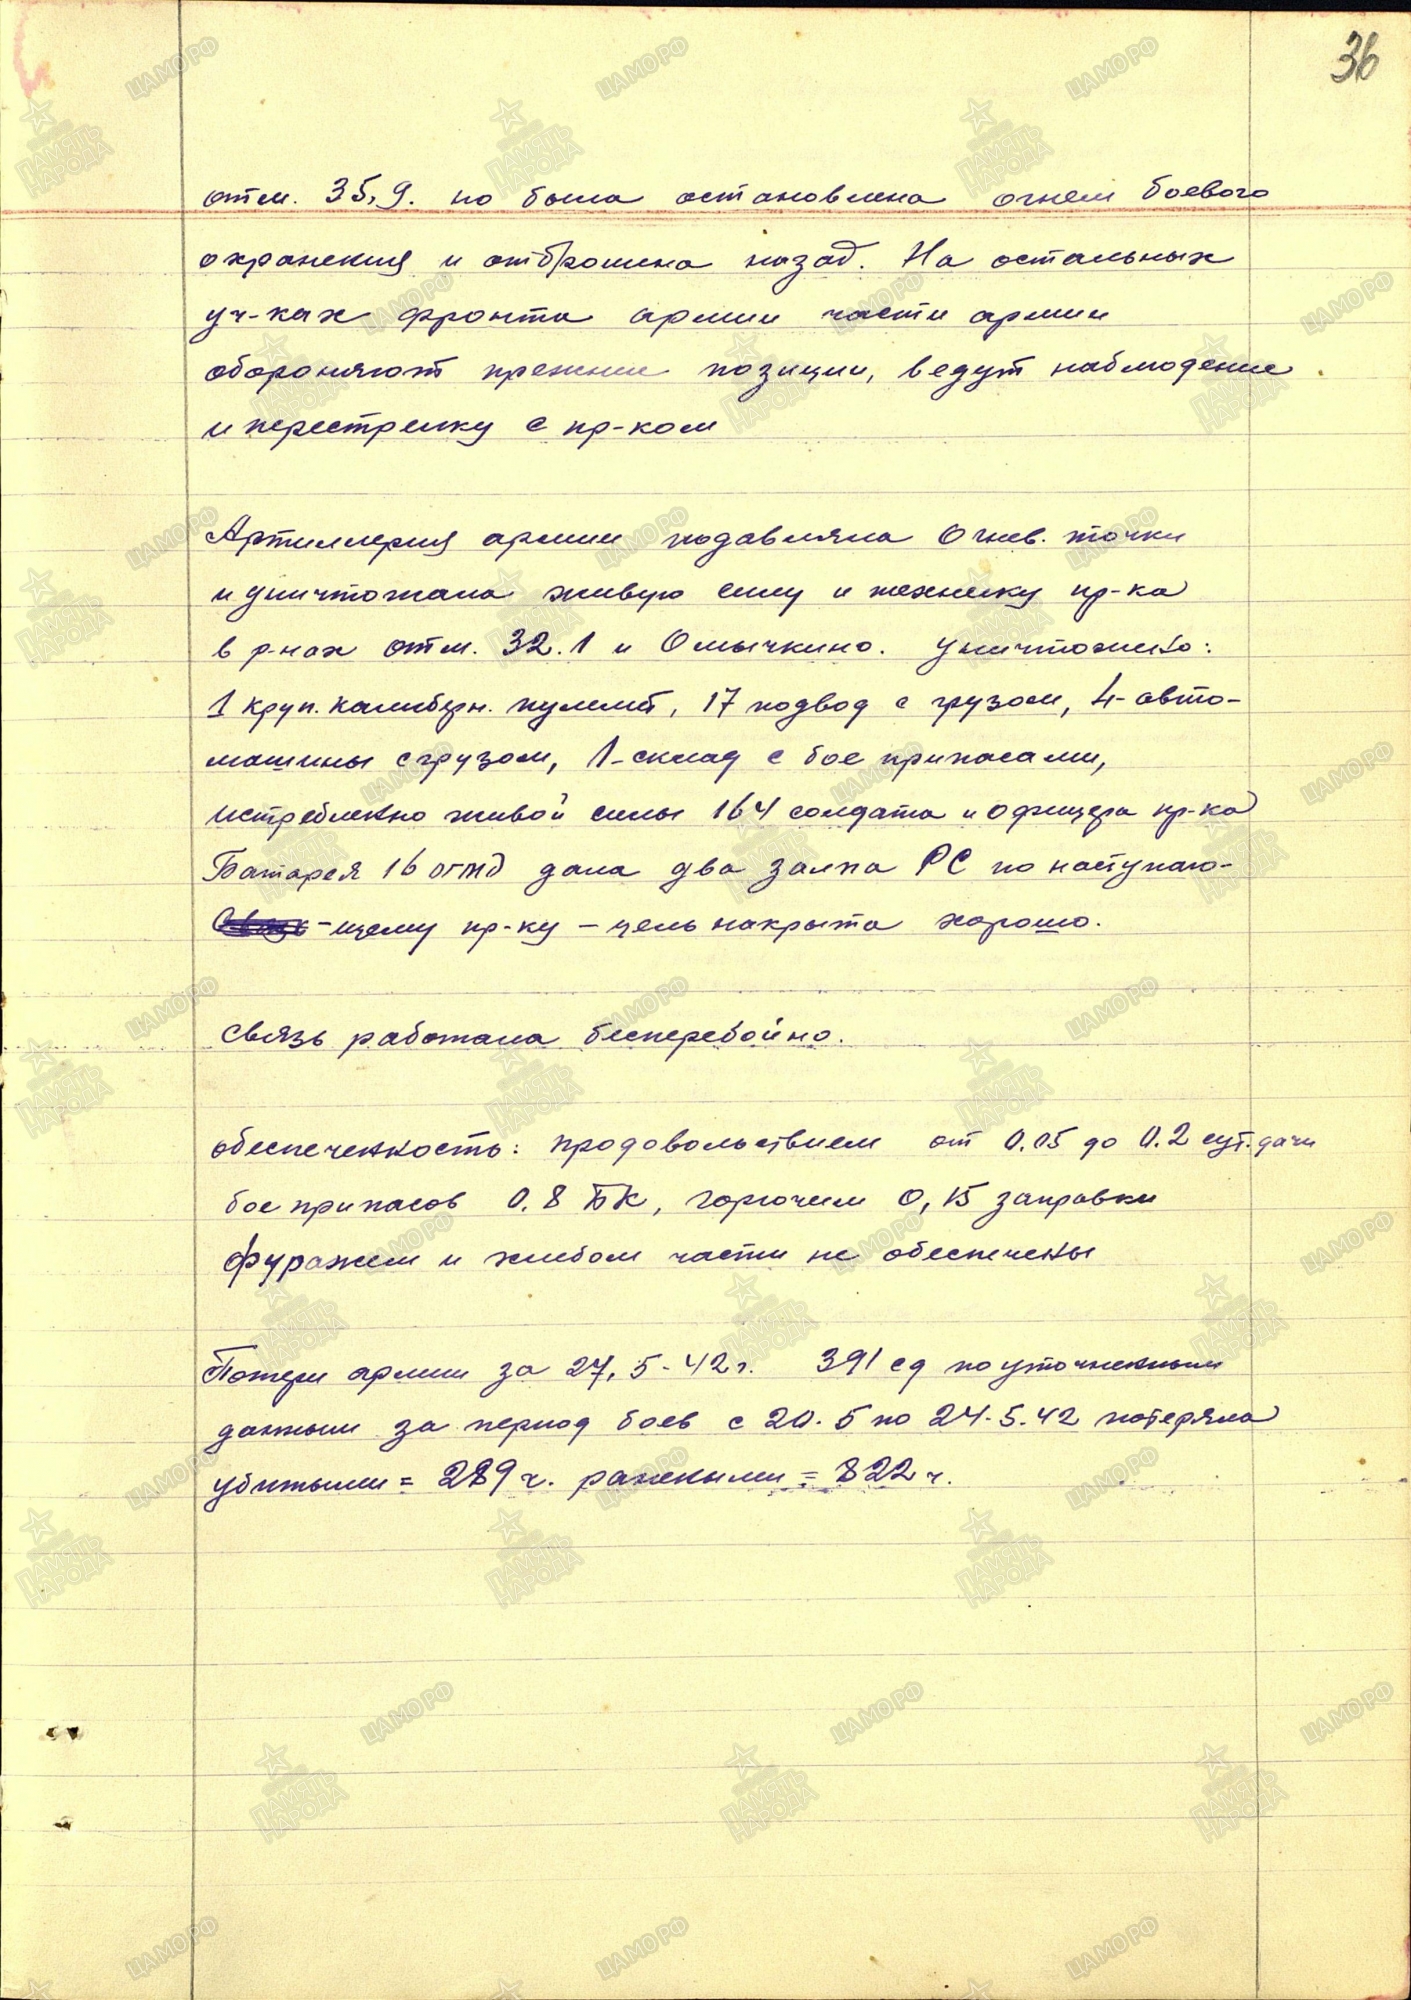 36
отм. 35,9. но была остановлена огнем боевого
охранения и отброшена назад. На остальных
уч-ках фронта армии части армии
обороняют прежние позиции, ведут наблюдение
и перестрелку с пр-ком
Артиллерия армии подавляла огнев. точки
и уничтожала живую силу и технику пр-ка
в р-нах отм. 32.1 и Омычкино. Уничтожено:
1 круп. калиберн. пулемет, 17 подвод с грузом, 4-авто-
машины с грузом, 1-склад с боеприпасами,
истреблено живой силы 164 солдата и офицера пр-ка
Батарея 16 огмд дала два залпа РС по наступаю-
-щему пр-ку – цель накрыта хорошо.
Связь работала бесперебойно.
обеспеченность: продовольствием от 0.05 до 0.2 сут. дачи
боеприпасов 0.8 БК, горючим 0,15 заправки
фуражем и хлебом части не обеспечены
Потери армии за 27.5-42 г. 391 сд по уточненным
данным за период боев с 20.5 по 24.5.42 потеряла
убитыми = 289 ч. ранеными = 822 ч.